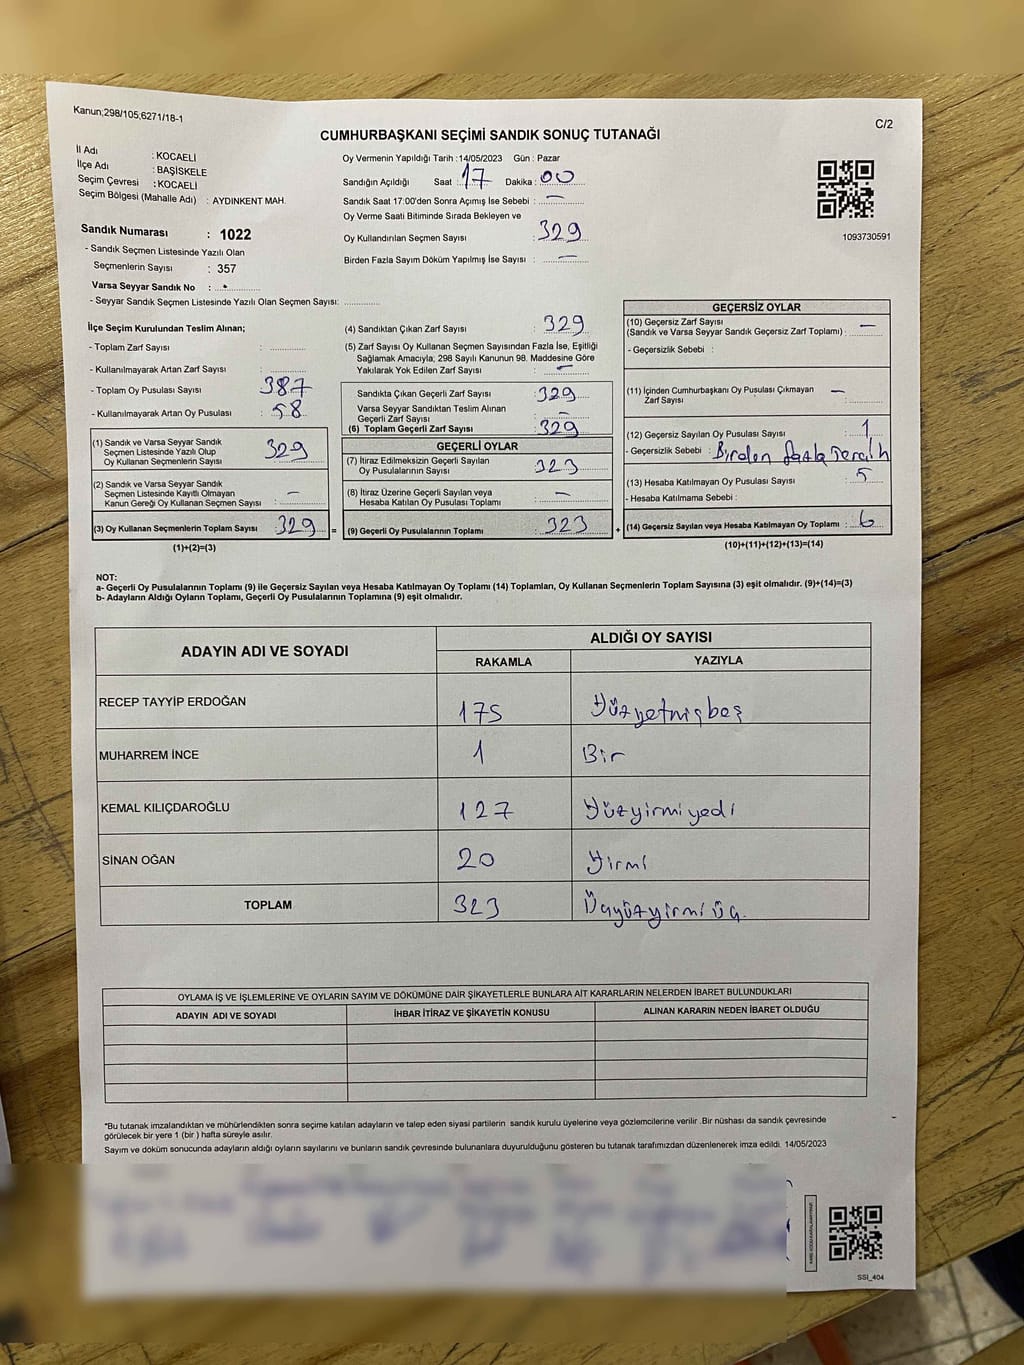 Kanun;298/105;6271/18-1
C/2
CUMHURBAŞKANI SEÇİMİ SANDIK SONUÇ TUTANAĞI
İl Adı : KOCAELİ
İlçe Adı : BAŞİSKELE
Seçim Çevresi : KOCAELİ
Seçim Bölgesi (Mahalle Adı) : AYDINKENT MAH.
Sandık Numarası : 1022
- Sandık Seçmen Listesinde Yazılı Olan
Seçmenlerin Sayısı : 357
Varsa Seyyar Sandık No :
- Seyyar Sandık Seçmen Listesinde Yazılı Olan Seçmen Sayısı:
Oy Vermenin Yapıldığı Tarih :14/05/2023 Gün : Pazar
Sandığın Açıldığı Saat : 17 Dakika : 00
Sandık Saat 17:00'den Sonra Açımış İse Sebebi : —
Oy Verme Saati Bitiminde Sırada Bekleyen ve
Oy Kullandırılan Seçmen Sayısı : 329
Birden Fazla Sayım Döküm Yapılmış İse Sayısı : —
1093730591
İlçe Seçim Kurulundan Teslim Alınan;
- Toplam Zarf Sayısı :
- Kullanılmayarak Artan Zarf Sayısı :
- Toplam Oy Pusulası Sayısı : 387
- Kullanılmayarak Artan Oy Pusulası : 58
(1) Sandık ve Varsa Seyyar Sandık
Seçmen Listesinde Yazılı Olup
Oy Kullanan Seçmenlerin Sayısı : 329
(2) Sandık ve Varsa Seyyar Sandık
Seçmen Listesinde Kayıtlı Olmayan
Kanun Gereği Oy Kullanan Seçmen Sayısı : —
(3) Oy Kullanan Seçmenlerin Toplam Sayısı : 329 =
(1)+(2)=(3)
(4) Sandıktan Çıkan Zarf Sayısı : 329
(5) Zarf Sayısı Oy Kullanan Seçmen Sayısından Fazla İse, Eşitliği
Sağlamak Amacıyla; 298 Sayılı Kanunun 98. Maddesine Göre
Yakılarak Yok Edilen Zarf Sayısı : —
Sandıkta Çıkan Geçerli Zarf Sayısı : 329
Varsa Seyyar Sandıktan Teslim Alınan
Geçerli Zarf Sayısı : —
(6) Toplam Geçerli Zarf Sayısı : 329
GEÇERLİ OYLAR
(7) İtiraz Edilmeksizin Geçerli Sayılan
Oy Pusulalarının Sayısı : 323
(8) İtiraz Üzerine Geçerli Sayılan veya
Hesaba Katılan Oy Pusulası Toplamı : —
(9) Geçerli Oy Pusulalarının Toplamı : 323 +
GEÇERSİZ OYLAR
(10) Geçersiz Zarf Sayısı
(Sandık ve Varsa Seyyar Sandık Geçersiz Zarf Toplamı) : —
- Geçersizlik Sebebi :
(11) İçinden Cumhurbaşkanı Oy Pusulası Çıkmayan —
Zarf Sayısı :
(12) Geçersiz Sayılan Oy Pusulası Sayısı : 1
- Geçersizlik Sebebi : Birden fazla Tercih
(13) Hesaba Katılmayan Oy Pusulası Sayısı : 5
- Hesaba Katılmama Sebebi :
(14) Geçersiz Sayılan veya Hesaba Katılmayan Oy Toplamı : 6
(10)+(11)+(12)+(13)=(14)
NOT:
a- Geçerli Oy Pusulalarının Toplamı (9) ile Geçersiz Sayılan veya Hesaba Katılmayan Oy Toplamı (14) Toplamları, Oy Kullanan Seçmenlerin Toplam Sayısına (3) eşit olmalıdır. (9)+(14)=(3)
b- Adayların Aldığı Oyların Toplamı, Geçerli Oy Pusulalarının Toplamına (9) eşit olmalıdır.
ADAYIN ADI VE SOYADI
ALDIĞI OY SAYISI
RAKAMLA YAZIYLA
RECEP TAYYİP ERDOĞAN 175 Yüzyetmişbeş
MUHARREM İNCE 1 Bir
KEMAL KILIÇDAROĞLU 127 Yüzyirmiyedi
SİNAN OĞAN 20 Yirmi
TOPLAM 323 Üçyüzyirmiüç.
OYLAMA İŞ VE İŞLEMLERİNE VE OYLARIN SAYIM VE DÖKÜMÜNE DAİR ŞİKAYETLERLE BUNLARA AİT KARARLARIN NELERDEN İBARET BULUNDUKLARI
ADAYIN ADI VE SOYADI İHBAR İTİRAZ VE ŞİKAYETİN KONUSU ALINAN KARARIN NEDEN İBARET OLDUĞU
*Bu tutanak imzalandıktan ve mühürlendikten sonra seçime katılan adayların ve talep eden siyasi partilerin sandık kurulu üyelerine veya gözlemcilerine verilir .Bir nüshası da sandık çevresinde
görülecek bir yere 1 (bir ) hafta süreyle asılır.
Sayım ve döküm sonucunda adayların aldığı oyların sayılarını ve bunların sandık çevresinde bulunanlara duyurulduğunu gösteren bu tutanak tarafımızdan düzenlenerek imza edildi. 14/05/2023
SSI_404